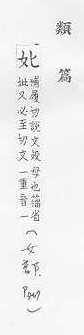 類篇
𡚧
補履切說文歿母也籀省
妣又必至切文一重音一
(女部